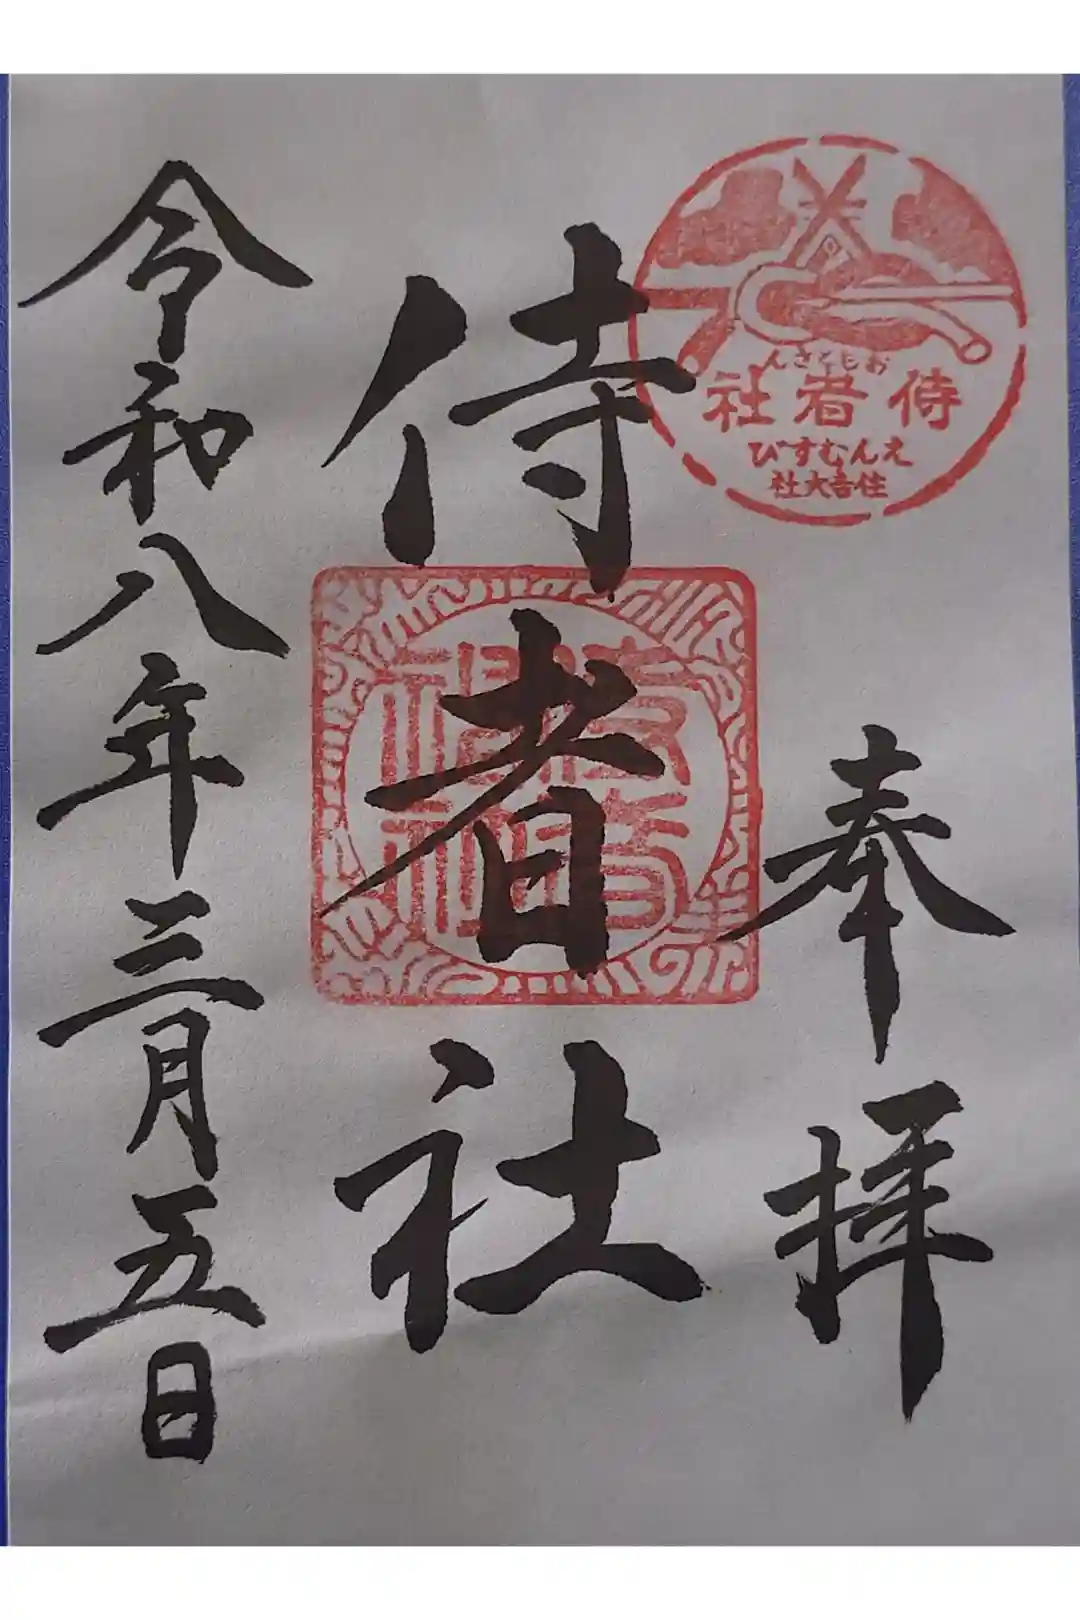 奉拝
おもとさん
侍者社
えんむすび
住吉大社
侍者社
令和八年三月五日